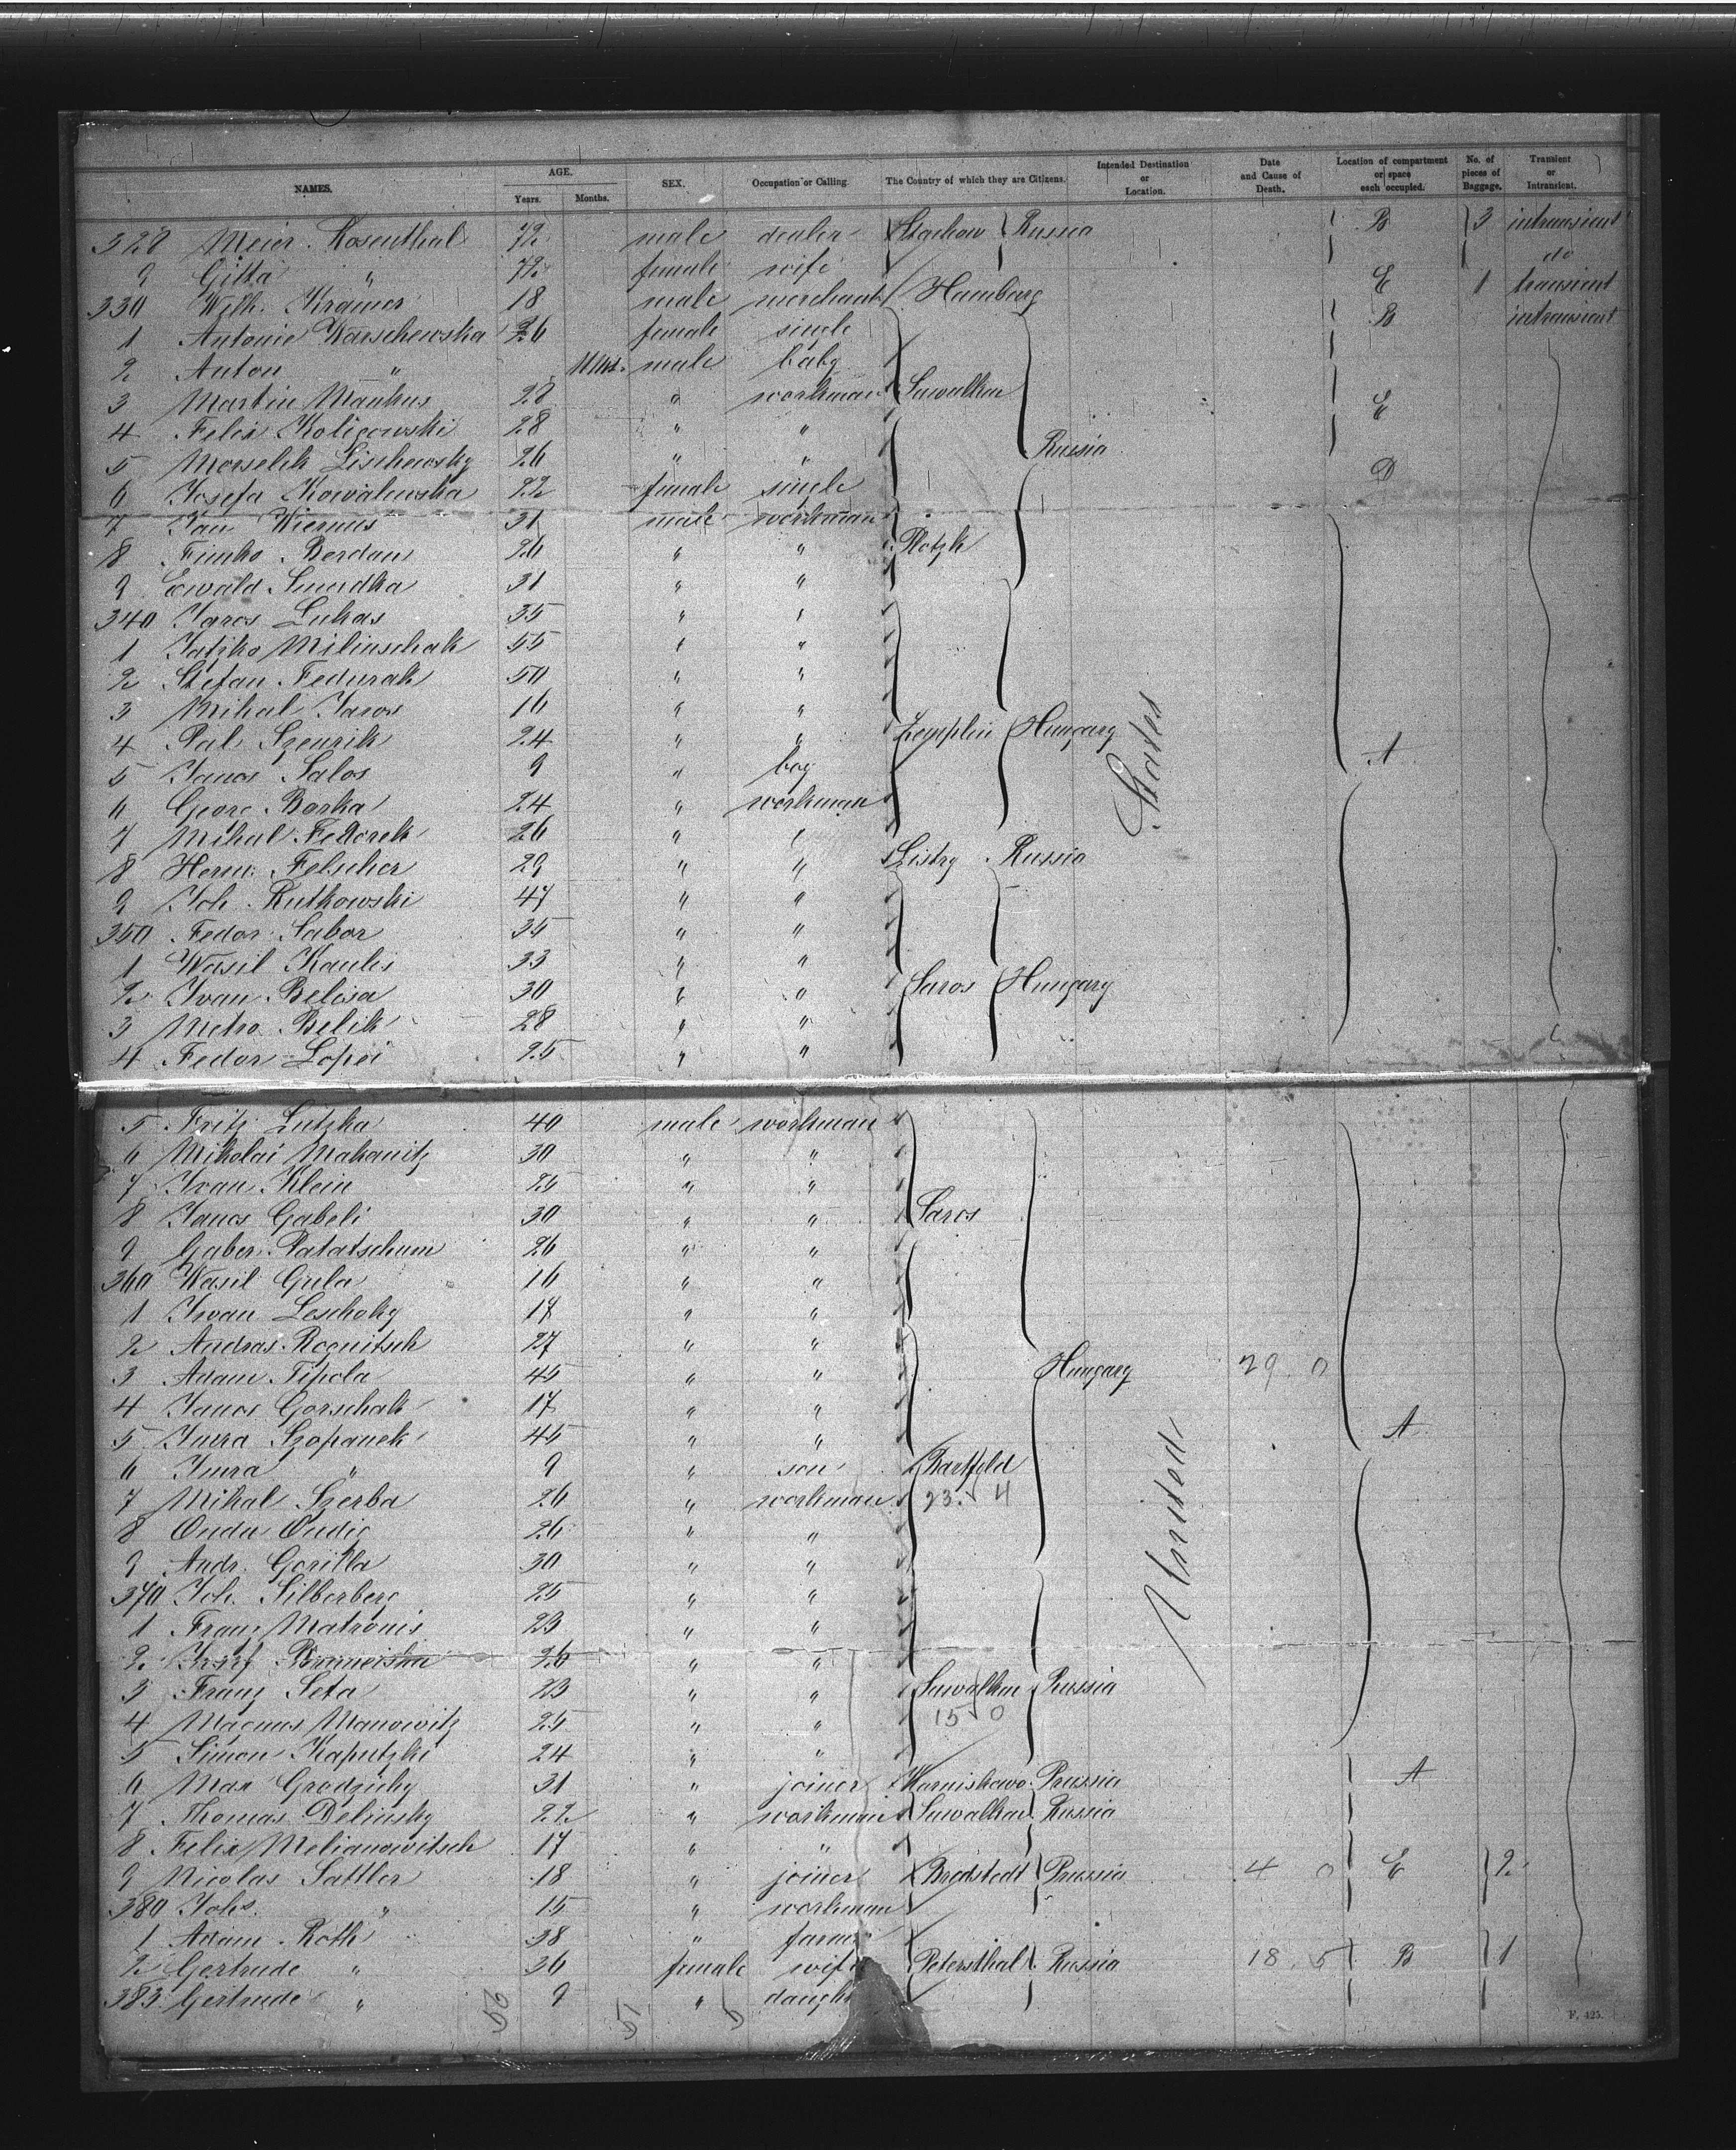 NAMES. AGE. Years. Months. SEX. Occupation or Calling. The Country of which they are Citizens. Intended Destination or Location. Date and Cause of Death. Location of compartment or space each occupied. No. of pieces of Baggage. Transient or Intransient.
328 Meier Rosenthal 72 male dealer Russia B 3 intransient
9 Gitta " 72 female wife do
330 Wilh. Krämer 18 male merchant Hamburg E 1 transient
1 Antonie Warschewska 26 female single B intransient
2 Anton " 11 Mts. male baby
3 Martin Mankus 28 " workman Suwalken E
4 Felix Koligowski 28 " "
5 Morselek Lischewsky 26 " " Russia D
6 Josefa Kowalewska 22 female single
7 Jan Wiernus 31 male workman
8 Funko Berdan 26 " " Plotzk
9 Ewald Smerdka 31 " "
340 Janos Lukas 35 " "
1 Jatzko Milinschak 55 " "
2 Stefan Fedurak 50 " "
3 Mihal Janos 16 " "
4 Pal Szenrik 24 " " Zemplin Hungary States A
5 Janos Salos 9 " boy
6 Georg Barka 24 " workman
7 Mihal Fedorek 26 " "
8 Herm. Felscher 29 " " Listry Russia
9 Joh. Rutkowski 47 " "
350 Fedor Sabor 35 " "
1 Wasil Kaulis 33 " "
2 Ivan Belisa 30 " " Saros Hungary
3 Metro Belik 28 " "
4 Fedor Lopei 25 " "
5 Fritz Lutzka 40 male workman
6 Mikolai Makanitz 30 " "
7 Ivan Klein 25 " "
8 Janos Gabeli 30 " " Saros
9 Gaber Patatschum 26 " "
360 Wasil Gula 16 " "
1 Iwan Leschoky 17 " "
2 Andras Rognitsch 27 " "
3 Adam Tipola 45 " " Hungary 29 0
4 Janos Gorschak 17 " " A
5 Jura Szopanek 45 " "
6 Jura " 9 " son Bartfeld
7 Mihal Szerba 26 " workman 23. 4 United
8 Onda Ondig 26 " "
9 Andr. Gorilla 30 " "
370 Joh. Silberberg 25 " "
1 Franz Matronis 23 " "
2 Josef 26 " "
3 Franz Seta 23 " " Suwalken Russia
4 Magnus Manowitz 25 " " 15 0
5 Simon Kaputzki 24 " "
6 Max Grodzicky 31 " joiner Karniskewo Prussia A
7 Thomas Delinsky 22 " workman Suwalken Russia
8 Felix Melianowitsch 17 " "
9 Nicolas Sattler 18 " joiner Bredstedt Prussia 4 0 E 2
380 Johs. " 15 " workman
1 Adam Roth 38 " farmer
2 Gertrude " 36 female wife Petersthal Russia 18. 5 B 1
383 Gertrude " 9 " daugh
F. 425.